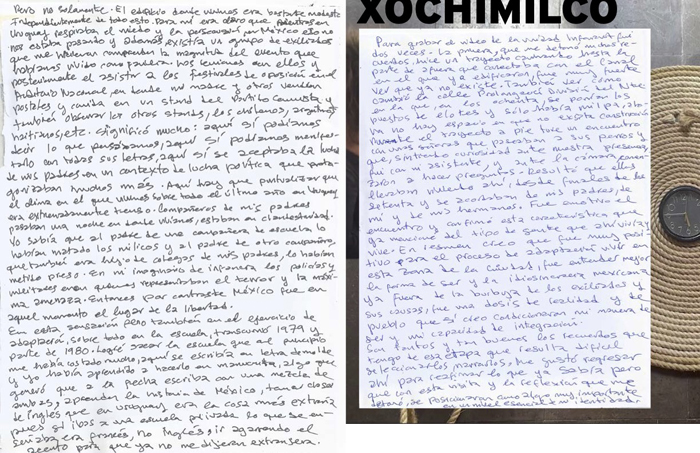 Pero no solamente. El edificio donde vivimos era bastante modesto
independientemente de todo esto. Para mí era claro que mientras en
Uruguay respiraba el miedo y la persecución en México eso no
nos estaba pasando y además existía un grupo de exiliados
que me hicieron comprender la magnitud del evento que
habíamos vivido como familia. Nos reuníamos con ellos y
posteriormente el asistir a los festivales de oposición en el
Auditorio Nacional, en donde mi madre y otros vendían
postales y comida en un stand del Partido Comunista, y
también observar los otros stands, los chilenos, argentinos
haitianos, etc. significó mucho: aquí sí podíamos
decir lo que pensábamos, aquí sí podíamos manifes-
tarlo con todas sus letras, aquí sí se aceptaba la
de mis padres en un contexto de lucha política que prota-
gonizaban muchos más. Aquí hay que puntualizar que
el clima en el que vivimos sobre todo el último año en Uruguay
era extremadamente tenso. Compañeros de mis padres
pasaban una noche en donde vivíamos, estaban en clandestinidad.
Yo sabía que al padre de una compañera de escuela lo
habían matado los milicos y al padre de otro compañero,
que también era hijo de colegas de mis padres, lo habían
metido preso. En mi imaginario de infancia los policías y
militares eran quienes representaban el terror y la máxi-
ma amenaza. Entonces por contraste México fue en
aquel momento el lugar de la libertad.
En esta sensación pero también en el ejercicio de
adaptación, sobre todo en la escuela, transcurrió 1979 y
parte de 1980. Logré pasar la escuela que al principio
me había costado mucho, aquí se escribía en letra de molde
y yo había aprendido a hacerlo en manuscrita, algo que
generó que a la fecha escriba con una mezcla de
ambas, aprender la historia de México, tomar clases
de inglés que en Uruguay era la cosa más extraña
pues si ibas a una escuela privada lo que se en-
señaba era francés, no inglés, ir agarrando el
acento para que ya no me dijeran extranjera.
XOCHIMILCO
Para grabar el video de la unidad Infonavit fui
dos veces. La primera, que me detonó muchos re-
cuerdos, hice un trayecto caminando hasta la
parte de afuera que conectaba con el canal
en el que ya edificaron, fue muy fuerte
ver que ya no existe. También ver como
cambió la calle Prolongación División del Norte
en la que, en los ochenta, se ponían los
puestos de elotes y sólo había milpa, aho-
ra no hay espacio que no exista construido.
Durante el trayecto a pie tuve un encuentro
con unas señoras que paseaban a sus perros y
que, sintiendo curiosidad ante nuestra presencia,
fui con mi asistente, y ante la cámara, comen-
zaron a hacer preguntas. Resultó que ellas
llevaban viviendo ahí, desde finales de los
setenta y se acordaban de mis padres, de
mí y de mis hermanos. Fue emotivo el
encuentro y confirmó esta característica que
ya mencioné del tipo de gente que ahí vivía y
vive. En resumen creo que fue muy posi-
tivo para el proceso de adaptación vivir en
esta zona de la ciudad, fue entender mejor
la forma de ser y la idiosincracia mexicana
ya fuera de la burbuja de los exiliados y
sus causas, fue una dosis de realidad y de
pueblo que sí creo condicionaron mi manera de
ser y mi capacidad de integración.
Son tantos y tan buenos los recuerdos que
tengo de esa etapa que resulta difícil
seleccionarlos, narrarlos, me gustó regresar
ahí para cerrar lo que ya sabía pero
que con esta visita y la reflexión que me
detonó, se posicionaron como algo muy importante
en un nivel esencial a mi identidad.